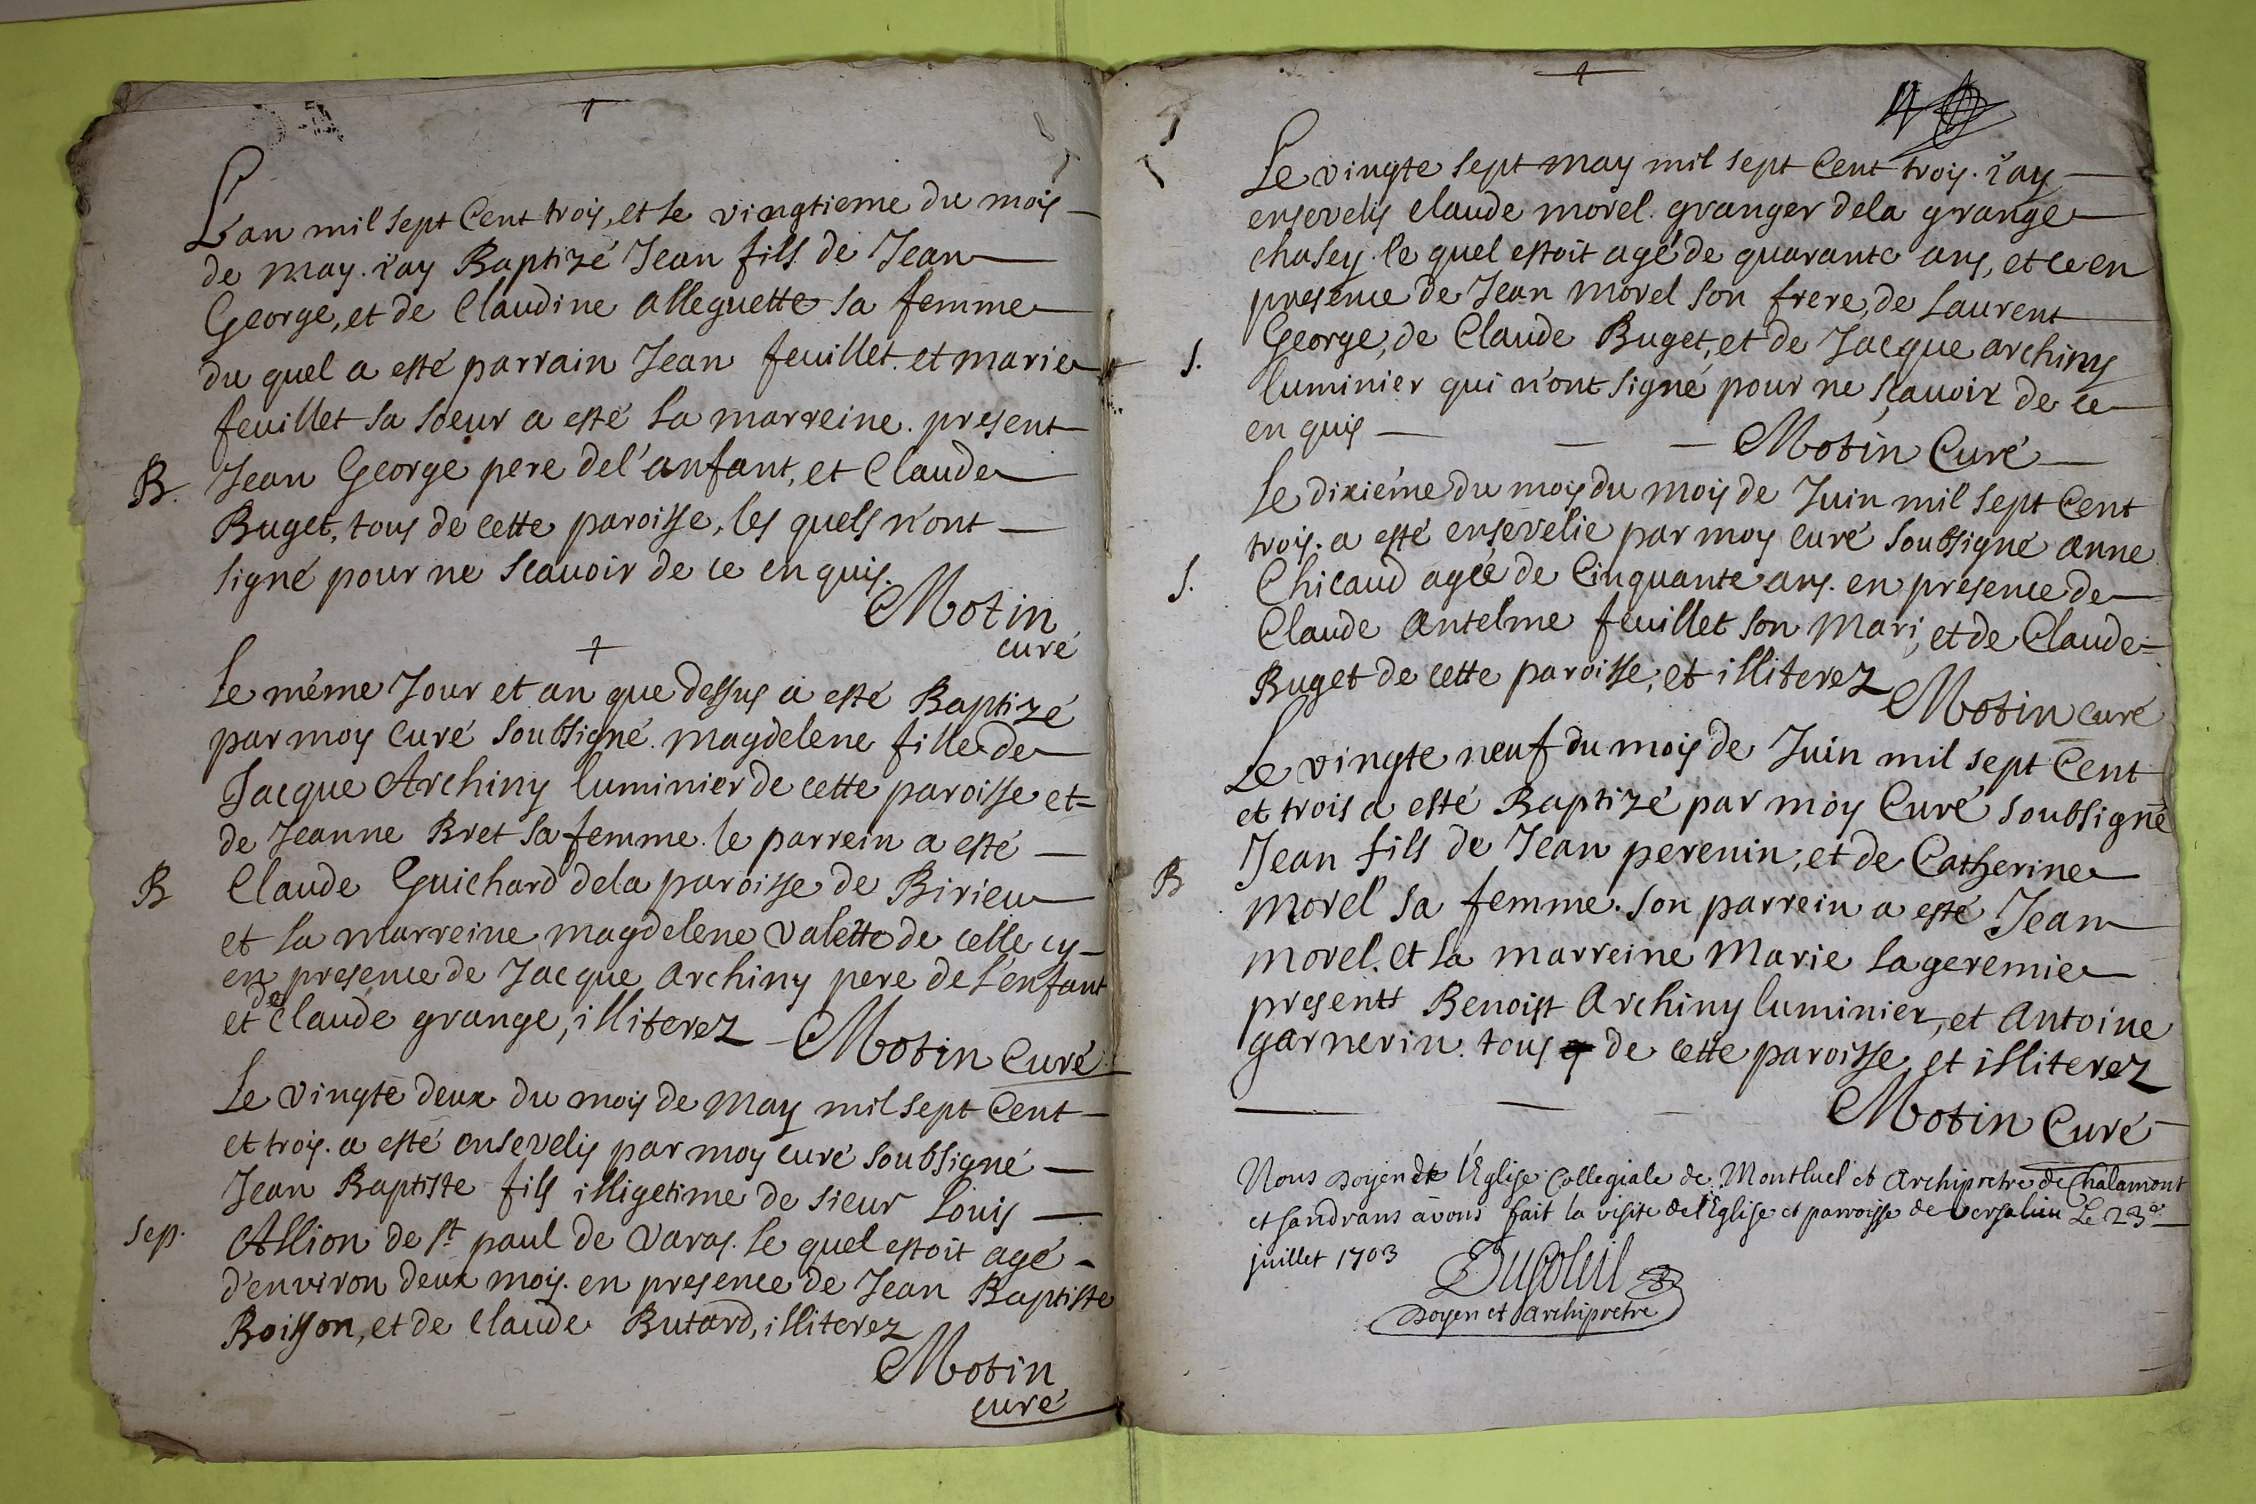 L'an mil sept Cent trois, et le vingtieme du mois
de may. i'ay Baptizé Jean fils de Jean
George, et de Claudine alleguette sa femme
du quel a esté parrain Jean feuillet. et marie
feuillet sa soeur a esté la marreine. present
B. Jean George pere de l'anfant, et Claude
Buget, tous de cette paroisse, les quels n'ont
signé pour ne scavoir de ce enquis.
Motin
curé
Le même Jour et an que dessus a esté Baptizé
par moy Curé soubsigné. magdelene fille de
Jacque Archiny luminier de cette paroisse et
de Jeanne Bret sa femme. le parrein a esté
B Claude Guichard dela paroisse de Birieu
et la marreine magdelene valette de celle cy
en presence de Jacque Archiny pere de l'enfant
et de Claude grange, illiterez Motin Curé
Le vingte deux du mois de May mil sept Cent
et trois. a esté ensevelis par moy curé soubsigné
Jean Baptiste fils illigetime de sieur Louis
sep. Allion de st paul de varas. le quel estoit agé
d'environ deux mois. en presence de Jean Baptiste
Boisson, et de Claude Butard, illiterez
Motin
curé
Le vingte sept may mil sept Cent trois. i'ay
ensevelis Claude morel. granger dela grange
chasey. le quel estoit agé de quarante ans, et ce en
presence de Jean morel son frere, de Laurent
George, de Claude Buget, et de Jacque archiny
S. luminier qui n'ont signé pour ne sçavoir de ce
en quis
Motin Curé
Le dixiéme du mois du mois de Juin mil sept Cent
trois. a esté ensevelie par moy curé soubsigné anne
S. Chicaud agée de Cinquante ans. en presence de
Claude Antelme feuillet son Mari, et de Claude
Buget de cette paroisse, et illiterez
Motin curé
Le vingte neuf du mois de Juin mil sept Cent
et trois a esté Baptizé par moy Curé soubsigné
Jean fils de Jean perenin, et de Catherine
B morel sa femme. son parrein a esté Jean
morel. et la marreine Marie lageremie
presents Benoist Archiny luminier, et Antoine
garnerin. tous de cette paroisse et illiterez
Motin Curé
Nous Doyen de l'Église Collegiale de Montluel et Archipretre de Chalamont
et sandrans avons fait la visite de l'Eglise et parroisse de versalieu Le 23e
juillet 1703 Dusoleil
Doyen et Archipretre